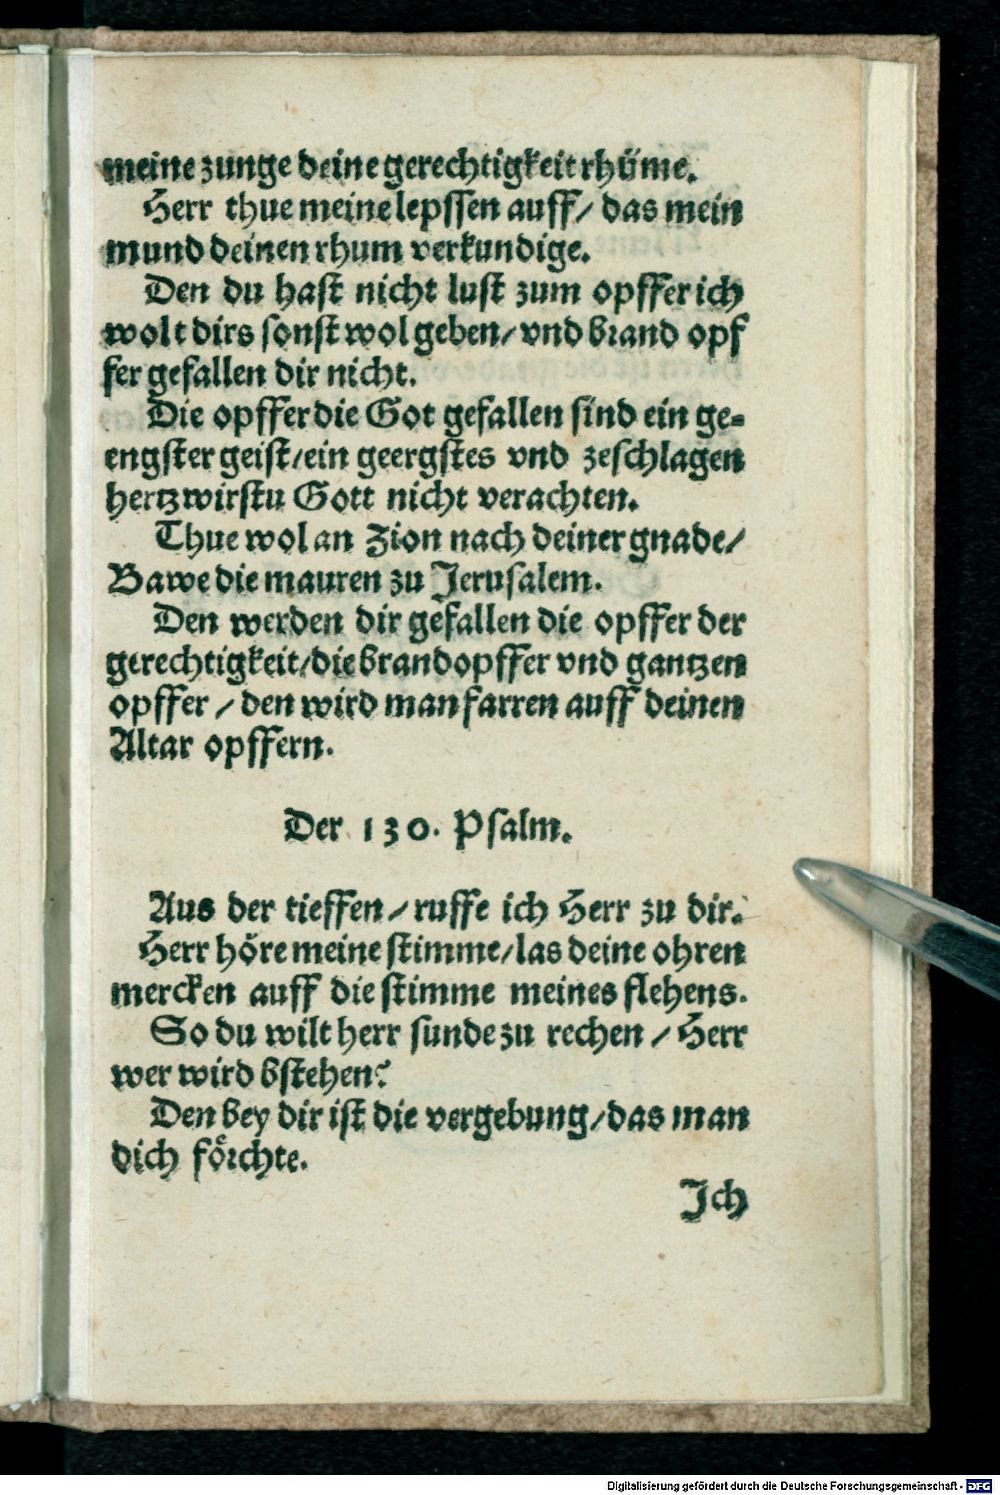 meine zunge deine gerechtigkeit rhüme.
Herr thue meine lepssen auff/ das mein
mund deinen rhum verkundige.
Den du hast nicht lust zum opffer ich
wolt dirs sonst wol geben/ vnd brand opf
fer gefallen dir nicht.
Die opffer die Got gefallen sind ein ge=
engster geist/ ein geergstes vnd zeschlagen
hertz wirstu Gott nicht verachten.
Thue wol an Zion nach deiner gnade/
Bawe die mauren zu Jerusalem.
Den werden dir gefallen die opffer der
gerechtigkeit/ die brandopffer vnd gantzen
opffer / den wird man farren auff deinen
Altar opffern.
Der 130. Psalm.
Aus der tieffen / ruffe ich Herr zu dir.
Herr höre meine stimme/ las deine ohren
mercken auff die stimme meines flehens.
So du wilt herr sunde zu rechen / Herr
wer wird bstehen?
Den bey dir ist die vergebung/ das man
dich förchte.
Ich
Digitalisierung gefördert durch die Deutsche Forschungsgemeinschaft - DFG